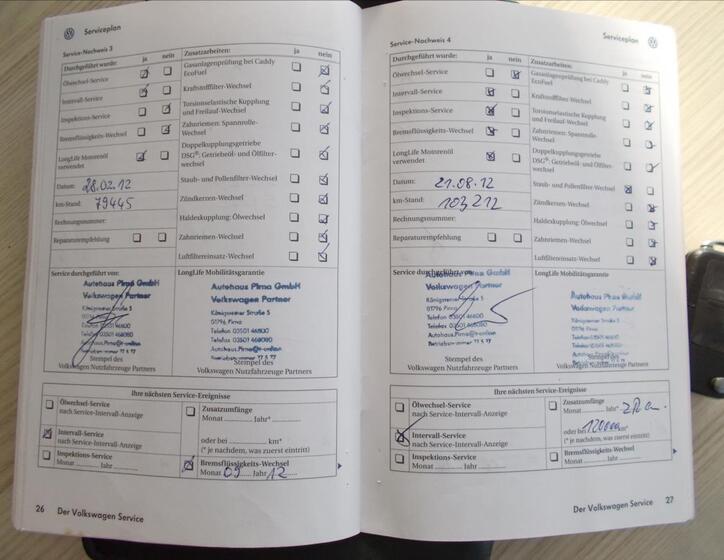 Serviceplan
Service-Nachweis 3
Durchgeführt wurde: ja nein
Ölwechsel-Service
Intervall-Service
Inspektions-Service
Bremsflüssigkeits-Wechsel
LongLife Motorenöl
verwendet
Datum: 28.02.12
km-Stand: 79445
Rechnungsnummer:
Reparaturempfehlung
Zusatzarbeiten: ja nein
Gasanlagenprüfung bei Caddy
EcoFuel
Kraftstofffilter-Wechsel
Torsionselastische Kupplung
und Freilauf-Wechsel
Zahnriemen: Spannrolle-
Wechsel
Doppelkupplungsgetriebe
DSG®: Getriebeöl- und Ölfilter-
wechsel
Staub- und Pollenfilter-Wechsel
Zündkerzen-Wechsel
Haldexkupplung: Ölwechsel
Zahnriemen-Wechsel
Luftfiltereinsatz-Wechsel
Service durchgeführt von:
Autohaus Pirna GmbH
Volkswagen Partner
Königsteiner Straße 5
01796 Pirna
Telefon 03501 46800
Telefax 03501 468080
Autohaus.Pirna@t-online
LongLife Mobilitätsgarantie
Autohaus Pirna GmbH
Volkswagen Partner
Königsteiner Straße 5
01796 Pirna
Telefon 03501 46800
Telefax 03501 468080
Autohaus.Pirna@t-online
Stempel des
Volkswagen Nutzfahrzeuge Partners
Stempel des
Volkswagen Nutzfahrzeuge Partners
Ihre nächsten Service-Ereignisse
Ölwechsel-Service
nach Service-Intervall-Anzeige
Intervall-Service
nach Service-Intervall-Anzeige
Inspektions-Service
Monat Jahr
Zusatzumfänge
Monat Jahr*
oder bei km*
(* je nachdem, was zuerst eintritt)
Bremsflüssigkeits-Wechsel
Monat 09 Jahr 12
26 Der Volkswagen Service
Serviceplan
Service-Nachweis 4
Durchgeführt wurde: ja nein
Ölwechsel-Service
Intervall-Service
Inspektions-Service
Bremsflüssigkeits-Wechsel
LongLife Motorenöl
verwendet
Datum: 21.08.12
km-Stand: 103212
Rechnungsnummer:
Reparaturempfehlung
Zusatzarbeiten: ja nein
Gasanlagenprüfung bei Caddy
EcoFuel
Kraftstofffilter-Wechsel
Torsionselastische Kupplung
und Freilauf-Wechsel
Zahnriemen: Spannrolle-
Wechsel
Doppelkupplungsgetriebe
DSG®: Getriebeöl- und Ölfilter-
wechsel
Staub- und Pollenfilter-Wechsel
Zündkerzen-Wechsel
Haldexkupplung: Ölwechsel
Zahnriemen-Wechsel
Luftfiltereinsatz-Wechsel
Service durchgeführt von:
Autohaus Pirna GmbH
Volkswagen Partner
Königsteiner Straße 5
01796 Pirna
Telefon 03501 46800
Telefax 03501 468080
Autohaus.Pirna@t-online
LongLife Mobilitätsgarantie
Autohaus Pirna GmbH
Volkswagen Partner
Königsteiner Straße 5
01796 Pirna
Stempel des
Volkswagen Nutzfahrzeuge Partners
Stempel des
Volkswagen Nutzfahrzeuge Partners
Ihre nächsten Service-Ereignisse
Ölwechsel-Service
nach Service-Intervall-Anzeige
Intervall-Service
nach Service-Intervall-Anzeige
Inspektions-Service
Monat Jahr
Zusatzumfänge
Monat Jahr*
oder bei km*
(* je nachdem, was zuerst eintritt)
Bremsflüssigkeits-Wechsel
Monat Jahr
Der Volkswagen Service 27